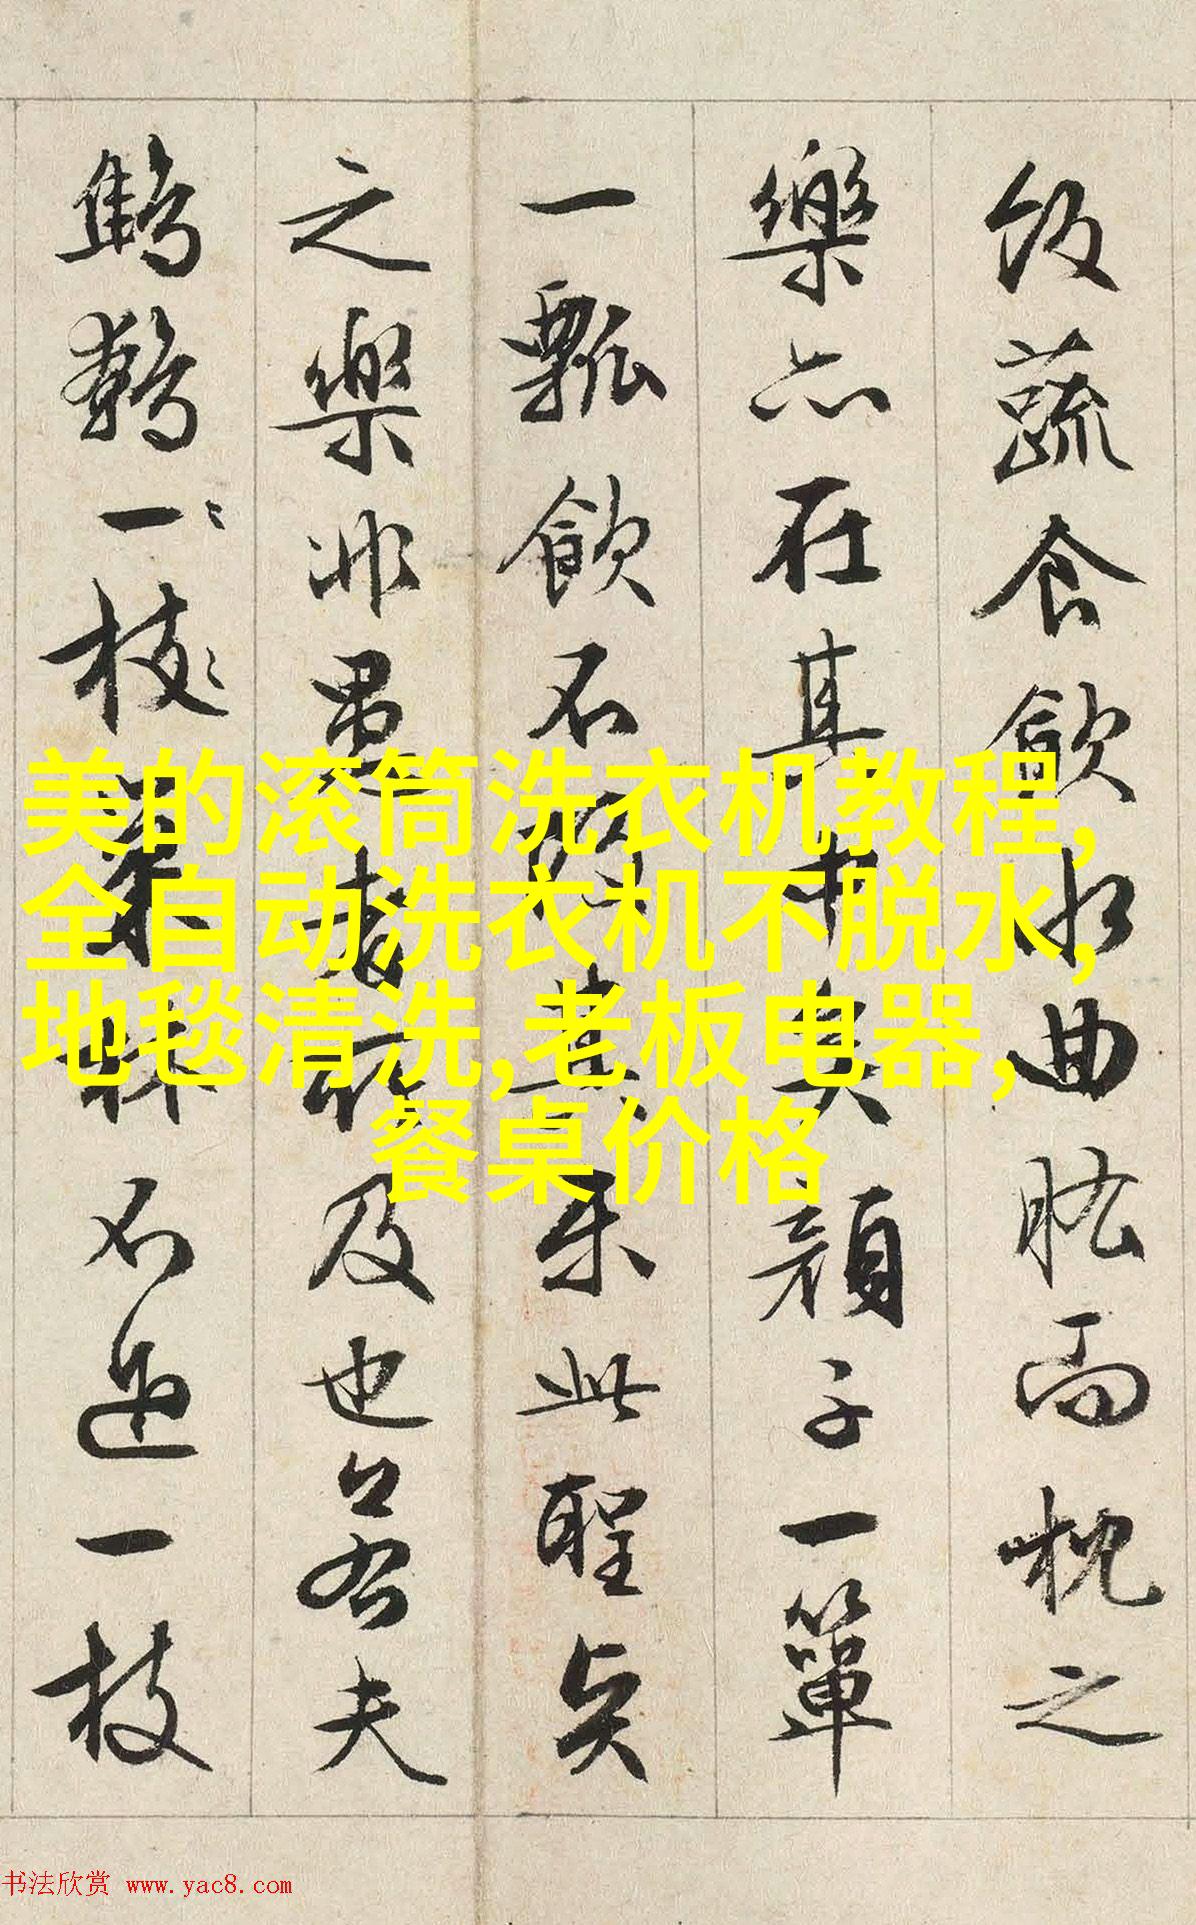 飯蔬食飲水曲肱而枕之
樂亦在其中矣顏子一簞
一瓢飲不改其樂此聖賢
之樂非愚者所及也若夫
鷦鷯一枝巢林不過一枝
美的滚筒洗衣机教程,
全自动洗衣机不脱水,
地毯清洗,老板电器,
餐桌价格
书法欣赏 www.yac8.com